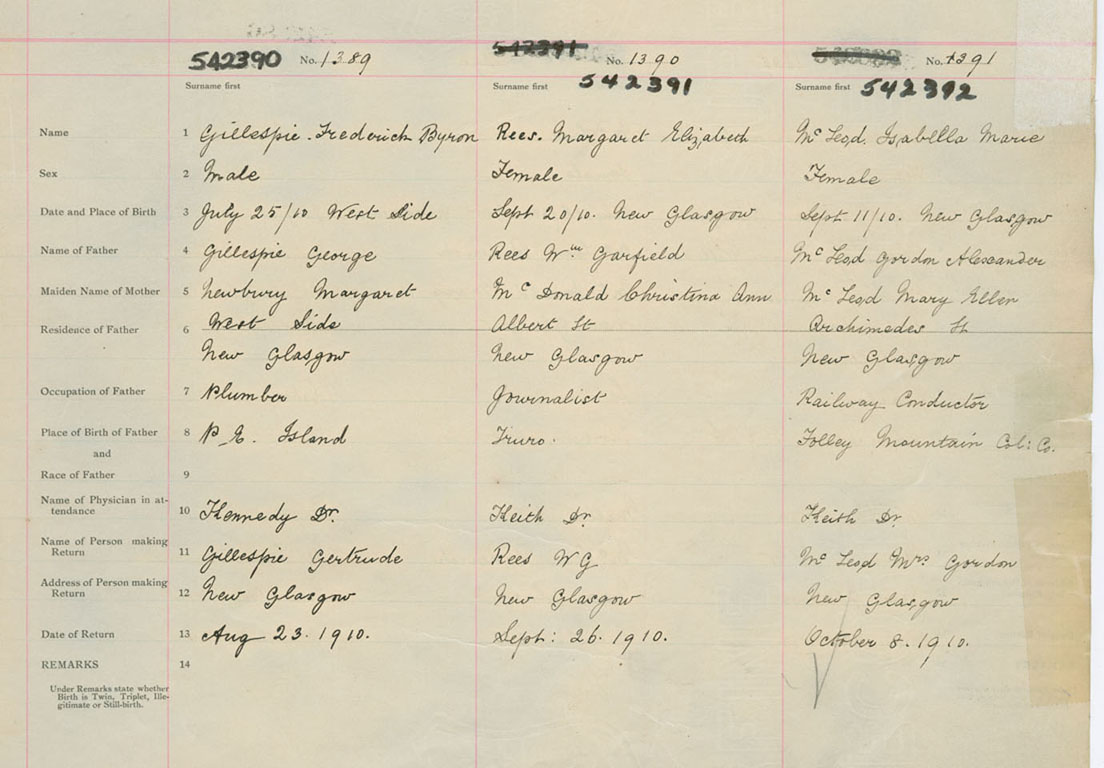 542390 No. 1389 542391 No. 1390 No. 1391
Surname first Surname first 542391 Surname first 542392
Name 1 Gillespie. Frederick Byron Rees. Margaret Elizabeth Mc Leod. Isabella Marie
Sex 2 Male Female Female
Date and Place of Birth 3 July 25/10 West Side Sept 20/10. New Glasgow Sept 11/10. New Glasgow
Name of Father 4 Gillespie George Rees Wm Garfield Mc Leod Gordon Alexander
Maiden Name of Mother 5 Newbury Margaret Mc Donald Christina Ann Mc Leod Mary Ellen
Residence of Father 6 West Side Albert St Archimedes St
New Glasgow New Glasgow New Glasgow
Occupation of Father 7 Plumber Journalist Railway Conductor
Place of Birth of Father 8 P. E. Island Truro. Folley Mountain Col: Co.
and
Race of Father 9
Name of Physician in at-
tendance 10 Kennedy Dr. Keith Dr. Keith Dr.
Name of Person making
Return 11 Gillespie Gertrude Rees W G Mc Leod Mrs. Gordon
Address of Person making
Return 12 New Glasgow New Glasgow New Glasgow
Date of Return 13 Aug 23. 1910. Sept: 26. 1910. October 8. 1910.
REMARKS 14
Under Remarks state whether
Birth is Twin, Triplet, Ille-
gitimate or Still-birth.